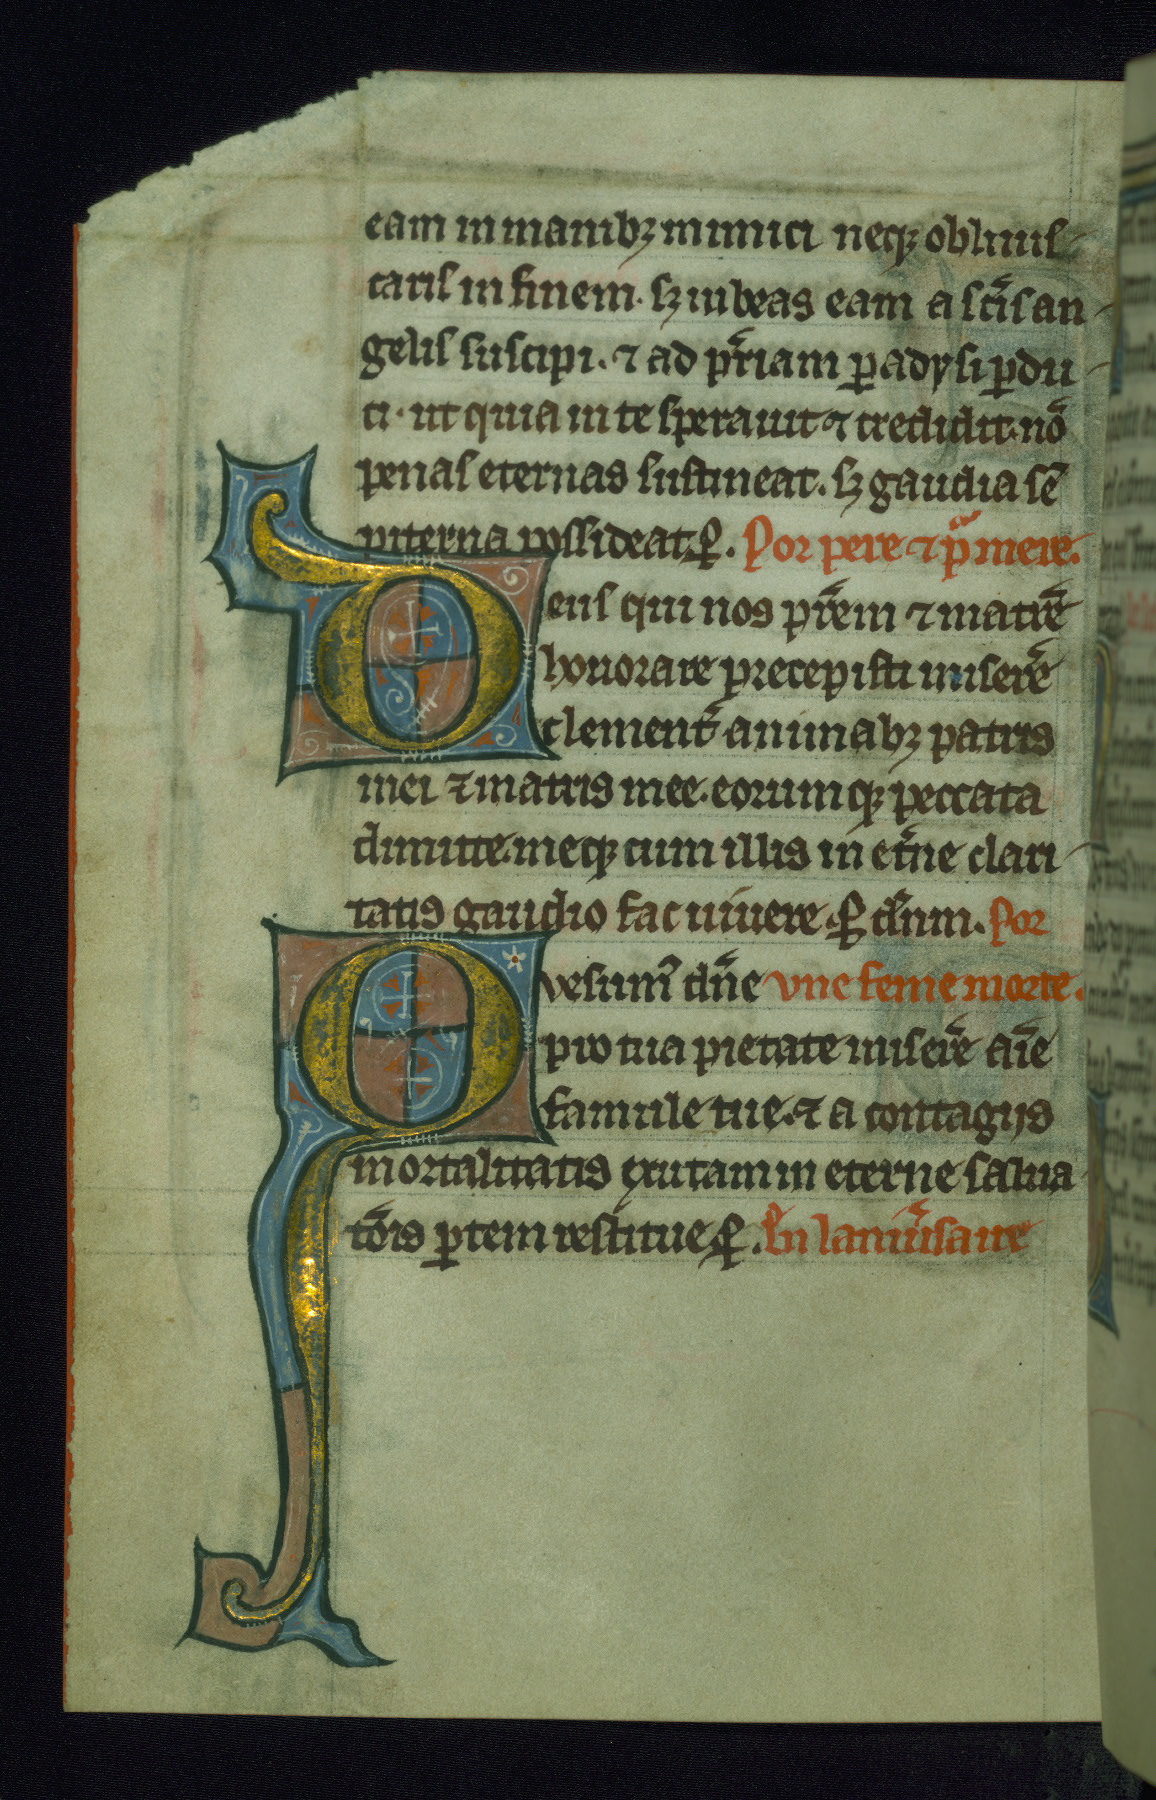 eam in manibꝫ inimici neqꝫ obliuis
caris in finem. sꝫ iubeas eam a sc̄is an
gelis suscipi. ⁊ ad pr̄iam ꝑadysi ꝑdu
ci. ut quia in te sperauit ⁊ credidit. nō
penas eternas sustineat. sꝫ gaudia sē
piterna possideat. ꝑ. Por pere ⁊ pᵃ mere.
Deus qui nos pr̄em ⁊ matrē
honorare precepisti miserē
clement̄ animabꝫ patris
mei ⁊ matris mee. eorumqꝫ peccata
dimitte. meqꝫ cum illis in et̄ne clari
tatis gaudio fac uiuere. ꝑ dn̄m. Por
Qvesum̄ dn̄e vne feme morte.
pro tua pietate miserē aīe
famule tue. ⁊ a contagijs
mortalitatis exutam in eterne salua
tōis ꝑtem restitue. ꝑ. En lanniu̾saire